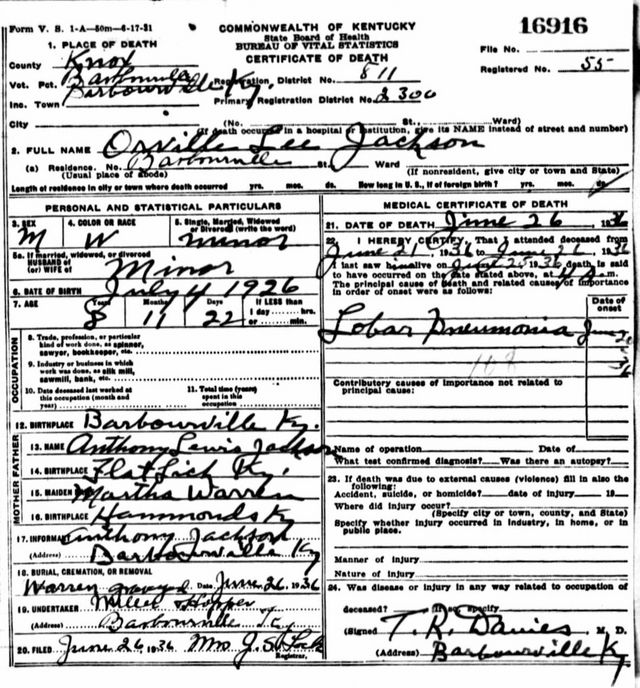 Form V. S. 1-A—50m—6-17-31
COMMONWEALTH OF KENTUCKY
State Board of Health
BUREAU OF VITAL STATISTICS
CERTIFICATE OF DEATH
16916
File No.
Registered No. 55
1. PLACE OF DEATH
County Knox
Vot. Pct. Barbourville
Inc. Town Barbourville Ky.
Registration District No. 811
Primary Registration District No. 2306
City (No. St., Ward)
(If death occurred in a hospital or institution, give its NAME instead of street and number)
2. FULL NAME Orville Lee Jackson
(a) Residence. No. Barbourville St. Ward
(Usual place of abode) (If nonresident, give city or town and State)
Length of residence in city or town where death occurred yrs. mos. ds. How long in U. S., if of foreign birth? yrs. mos. ds.
PERSONAL AND STATISTICAL PARTICULARS
3. SEX M
4. COLOR OR RACE W
5. Single, Married, Widowed or Divorced (write the word) minor
5a. If married, widowed, or divorced
HUSBAND of
(or) WIFE of Minor
6. DATE OF BIRTH July 4 1926
7. AGE Years 8 Months 11 Days 22 If LESS than 1 day hrs. or min.
OCCUPATION
8. Trade, profession, or particular
kind of work done, as spinner,
sawyer, bookkeeper, etc.
9. Industry or business in which
work was done, as silk mill,
sawmill, bank, etc.
10. Date deceased last worked at
this occupation (month and
year)
11. Total time (years)
spent in this
occupation
12. BIRTHPLACE Barbourville Ky.
MOTHER FATHER
13. NAME Anthony Lewis Jackson
14. BIRTHPLACE Flat Lick Ky.
15. MAIDEN Martha Warren
16. BIRTHPLACE Hammonds Ky
17. INFORMANT Anthony Jackson
(Address) Barbourville Ky
18. BURIAL, CREMATION, OR REMOVAL
Warren Date June 26 1936
19. UNDERTAKER Miller Hopper
(Address) Barbourville Ky
20. FILED June 26 1936 Mrs J. S. Lock
Registrar.
MEDICAL CERTIFICATE OF DEATH
21. DATE OF DEATH June 26, 1936
22. I HEREBY CERTIFY, That I attended deceased from
June 21, 1936 to June 26, 1936
I last saw him alive on 1936 death is said
to have occurred on the date stated above, at m.
The principal cause of death and related causes of importance
in order of onset were as follows:
Date of onset
Lobar Pneumonia June
36
108
Contributory causes of importance not related to
principal cause:
Name of operation Date of
What test confirmed diagnosis? Was there an autopsy?
23. If death was due to external causes (violence) fill in also the
following:
Accident, suicide, or homicide? date of injury 19
Where did injury occur?
(Specify city or town, county, and State)
Specify whether injury occurred in industry, in home, or in
public place.
Manner of injury
Nature of injury
24. Was disease or injury in any way related to occupation of
deceased? If so, specify
(Signed T. R. Davies M. D.
(Address) Barbourville Ky